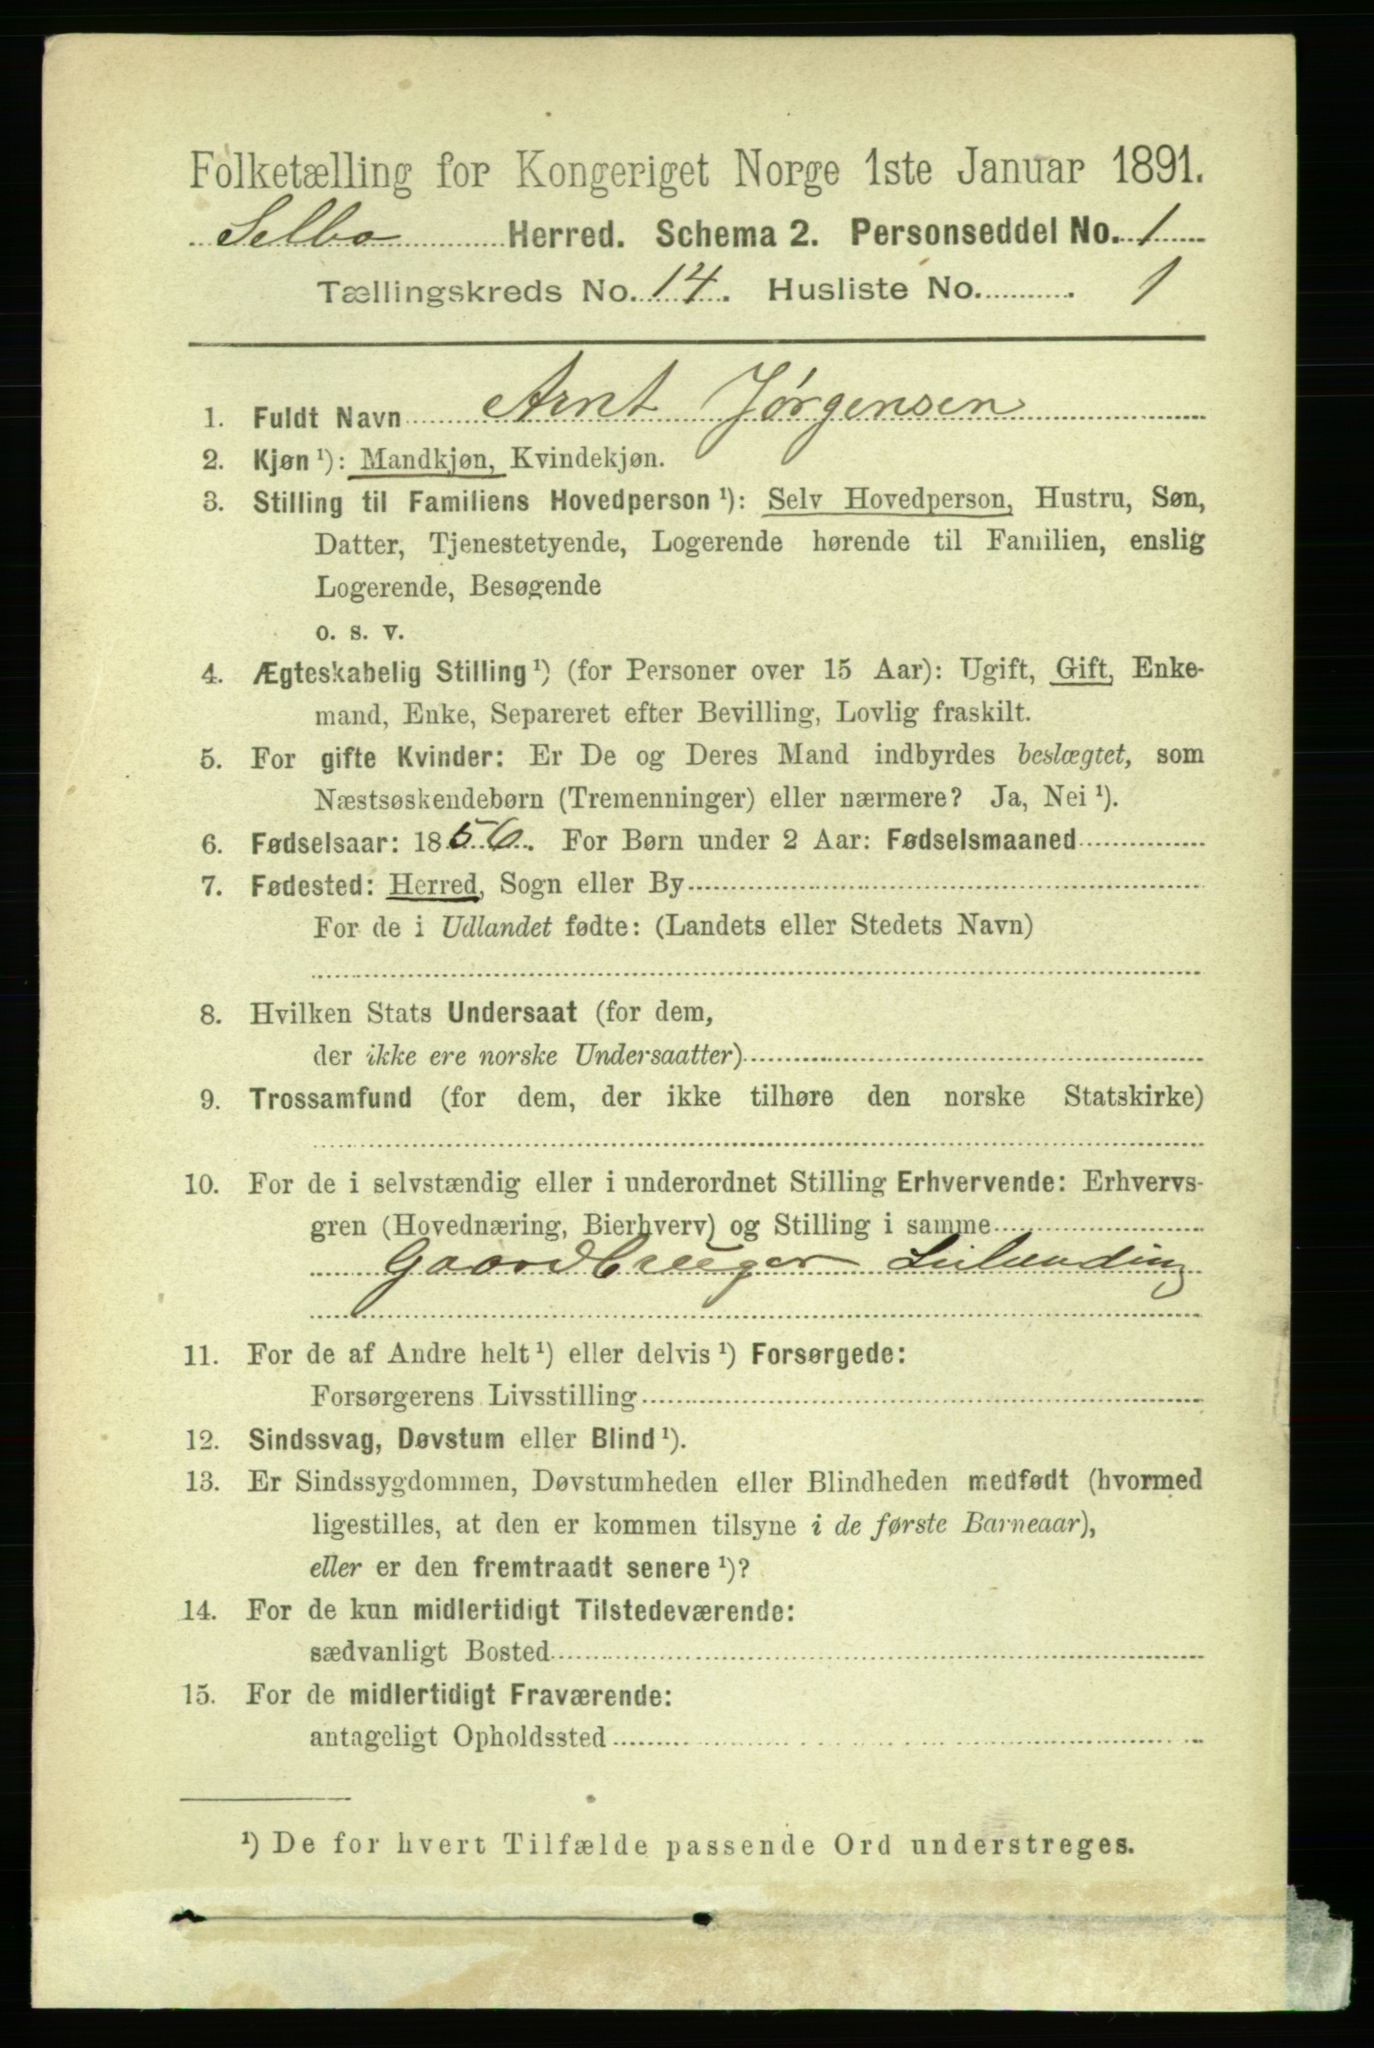 Folketælling for Kongeriget Norge 1ste Januar 1891.
Selbo Herred. Schema 2. Personseddel No. 1
Tællingskreds No. 14. Husliste No. 1
1. Fuldt Navn Arnt Jørgensen
2. Kjøn ¹): Mandkjøn, Kvindekjøn.
3. Stilling til Familiens Hovedperson ¹): Selv Hovedperson, Hustru, Søn,
Datter, Tjenestetyende, Logerende hørende til Familien, enslig
Logerende, Besøgende
o. s. v.
4. Ægteskabelig Stilling ¹) (for Personer over 15 Aar): Ugift, Gift, Enke-
mand, Enke, Separeret efter Bevilling, Lovlig fraskilt.
5. For gifte Kvinder: Er De og Deres Mand indbyrdes beslægtet, som
Næstsøskendebørn (Tremenninger) eller nærmere? Ja, Nei ¹).
6. Fødselsaar: 1856. For Børn under 2 Aar: Fødselsmaaned
7. Fødested: Herred, Sogn eller By
For de i Udlandet fødte: (Landets eller Stedets Navn)
8. Hvilken Stats Undersaat (for dem,
der ikke ere norske Undersaatter)
9. Trossamfund (for dem, der ikke tilhøre den norske Statskirke)
10. For de i selvstændig eller i underordnet Stilling Erhvervende: Erhvervs-
gren (Hovednæring, Bierhverv) og Stilling i samme
Gaardbruger
11. For de af Andre helt ¹) eller delvis ¹) Forsørgede:
Forsørgerens Livsstilling
12. Sindssvag, Døvstum eller Blind ¹).
13. Er Sindssygdommen, Døvstumheden eller Blindheden medfødt (hvormed
ligestilles, at den er kommen tilsyne i de første Barneaar),
eller er den fremtraadt senere ¹)?
14. For de kun midlertidigt Tilstedeværende:
sædvanligt Bosted
15. For de midlertidigt Fraværende:
antageligt Opholdssted
¹) De for hvert Tilfælde passende Ord understreges.